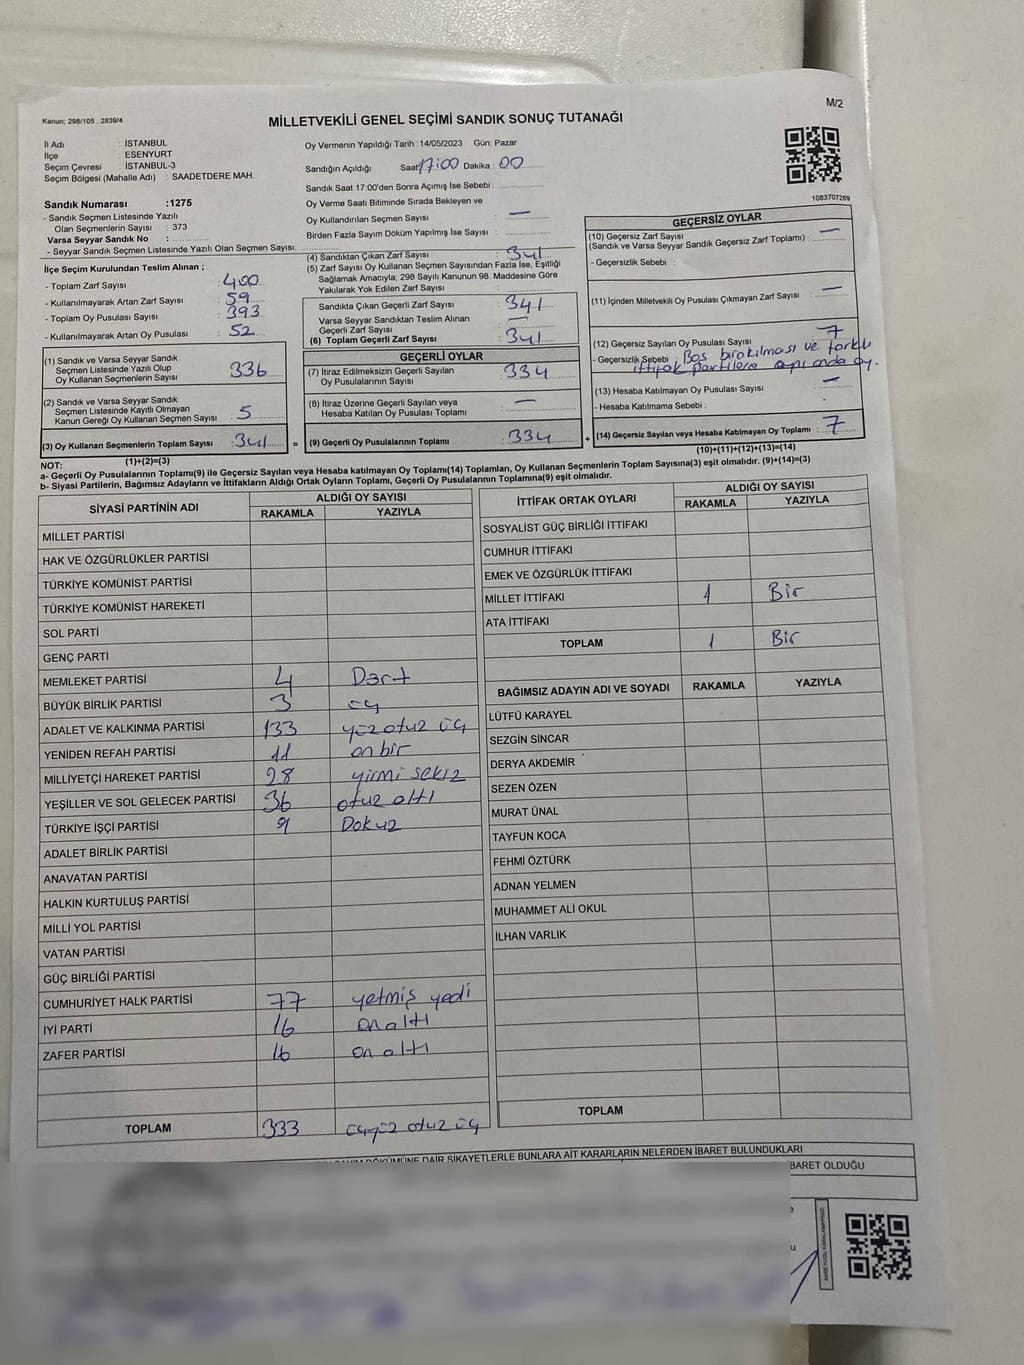 M/2
Kanun; 298/105 , 2839/4
MİLLETVEKİLİ GENEL SEÇİMİ SANDIK SONUÇ TUTANAĞI
İl Adı : İSTANBUL
İlçe : ESENYURT
Seçim Çevresi : İSTANBUL-3
Seçim Bölgesi (Mahalle Adı) : SAADETDERE MAH.
Sandık Numarası :1275
- Sandık Seçmen Listesinde Yazılı
Olan Seçmenlerin Sayısı : 373
Varsa Seyyar Sandık No :
- Seyyar Sandık Seçmen Listesinde Yazılı Olan Seçmen Sayısı:
İlçe Seçim Kurulundan Teslim Alınan ;
- Toplam Zarf Sayısı : 400
- Kullanılmayarak Artan Zarf Sayısı : 59
- Toplam Oy Pusulası Sayısı : 393
- Kullanılmayarak Artan Oy Pusulası : 52
(1) Sandık ve Varsa Seyyar Sandık
Seçmen Listesinde Yazılı Olup
Oy Kullanan Seçmenlerin Sayısı : 336
(2) Sandık ve Varsa Seyyar Sandık
Seçmen Listesinde Kayıtlı Olmayan
Kanun Gereği Oy Kullanan Seçmen Sayısı : 5
(3) Oy Kullanan Seçmenlerin Toplam Sayısı : 341
(1)+(2)=(3)
Oy Vermenin Yapıldığı Tarih : 14/05/2023 Gün: Pazar
Sandığın Açıldığı Saat 17:00 Dakika : 00
Sandık Saat 17:00'den Sonra Açımış İse Sebebi :
Oy Verme Saati Bitiminde Sırada Bekleyen ve
Oy Kullandırılan Seçmen Sayısı : —
Birden Fazla Sayım Döküm Yapılmış İse Sayısı :
(4) Sandıktan Çıkan Zarf Sayısı : 341
(5) Zarf Sayısı Oy Kullanan Seçmen Sayısından Fazla İse, Eşitliği
Sağlamak Amacıyla, 298 Sayılı Kanunun 98. Maddesine Göre
Yakılarak Yok Edilen Zarf Sayısı :
Sandıkta Çıkan Geçerli Zarf Sayısı : 341
Varsa Seyyar Sandıktan Teslim Alınan
Geçerli Zarf Sayısı : —
(6) Toplam Geçerli Zarf Sayısı : 341
GEÇERLİ OYLAR
(7) İtiraz Edilmeksizin Geçerli Sayılan
Oy Pusulalarının Sayısı : 334
(8) İtiraz Üzerine Geçerli Sayılan veya
Hesaba Katılan Oy Pusulası Toplamı : —
= (9) Geçerli Oy Pusulalarının Toplamı : 334 +
1083707289
GEÇERSİZ OYLAR
(10) Geçersiz Zarf Sayısı : —
(Sandık ve Varsa Seyyar Sandık Geçersiz Zarf Toplamı)
- Geçersizlik Sebebi :
(11) İçinden Milletvekili Oy Pusulası Çıkmayan Zarf Sayısı : —
(12) Geçersiz Sayılan Oy Pusulası Sayısı : 7
- Geçersizlik Sebebi : Boş bırakılması ve farklı
ittifak partilere aynı anda oy.
(13) Hesaba Katılmayan Oy Pusulası Sayısı : —
- Hesaba Katılmama Sebebi :
(14) Geçersiz Sayılan veya Hesaba Katılmayan Oy Toplamı : 7
(10)+(11)+(12)+(13)=(14)
NOT:
a- Geçerli Oy Pusulalarının Toplamı(9) ile Geçersiz Sayılan veya Hesaba katılmayan Oy Toplamı(14) Toplamları, Oy Kullanan Seçmenlerin Toplam Sayısına(3) eşit olmalıdır. (9)+(14)=(3)
b- Siyasi Partilerin, Bağımsız Adayların ve İttifakların Aldığı Ortak Oyların Toplamı, Geçerli Oy Pusulalarının Toplamına(9) eşit olmalıdır.
SİYASİ PARTİNİN ADI ALDIĞI OY SAYISI
RAKAMLA YAZIYLA
MİLLET PARTİSİ
HAK VE ÖZGÜRLÜKLER PARTİSİ
TÜRKİYE KOMÜNİST PARTİSİ
TÜRKİYE KOMÜNİST HAREKETİ
SOL PARTİ
GENÇ PARTİ
MEMLEKET PARTİSİ 4 Dört
BÜYÜK BİRLİK PARTİSİ 3 üç
ADALET VE KALKINMA PARTİSİ 133 yüz otuz üç
YENİDEN REFAH PARTİSİ 11 on bir
MİLLİYETÇİ HAREKET PARTİSİ 28 yirmi sekiz
YEŞİLLER VE SOL GELECEK PARTİSİ 36 otuz altı
TÜRKİYE İŞÇİ PARTİSİ 9 Dokuz
ADALET BİRLİK PARTİSİ
ANAVATAN PARTİSİ
HALKIN KURTULUŞ PARTİSİ
MİLLİ YOL PARTİSİ
VATAN PARTİSİ
GÜÇ BİRLİĞİ PARTİSİ
CUMHURİYET HALK PARTİSİ 77 yetmiş yedi
İYİ PARTİ 16 on altı
ZAFER PARTİSİ 16 on altı
TOPLAM 333 üçyüz otuz üç
İTTİFAK ORTAK OYLARI ALDIĞI OY SAYISI
RAKAMLA YAZIYLA
SOSYALİST GÜÇ BİRLİĞİ İTTİFAKI
CUMHUR İTTİFAKI
EMEK VE ÖZGÜRLÜK İTTİFAKI
MİLLET İTTİFAKI 1 Bir
ATA İTTİFAKI
TOPLAM 1 Bir
BAĞIMSIZ ADAYIN ADI VE SOYADI RAKAMLA YAZIYLA
LÜTFÜ KARAYEL
SEZGİN SİNCAR
DERYA AKDEMİR
SEZEN ÖZEN
MURAT ÜNAL
TAYFUN KOCA
FEHMİ ÖZTÜRK
ADNAN YELMEN
MUHAMMET ALİ OKUL
İLHAN VARLIK
TOPLAM
DÖKÜMÜNE DAİR ŞİKAYETLERLE BUNLARA AİT KARARLARIN NELERDEN İBARET BULUNDUKLARI
İBARET OLDUĞU